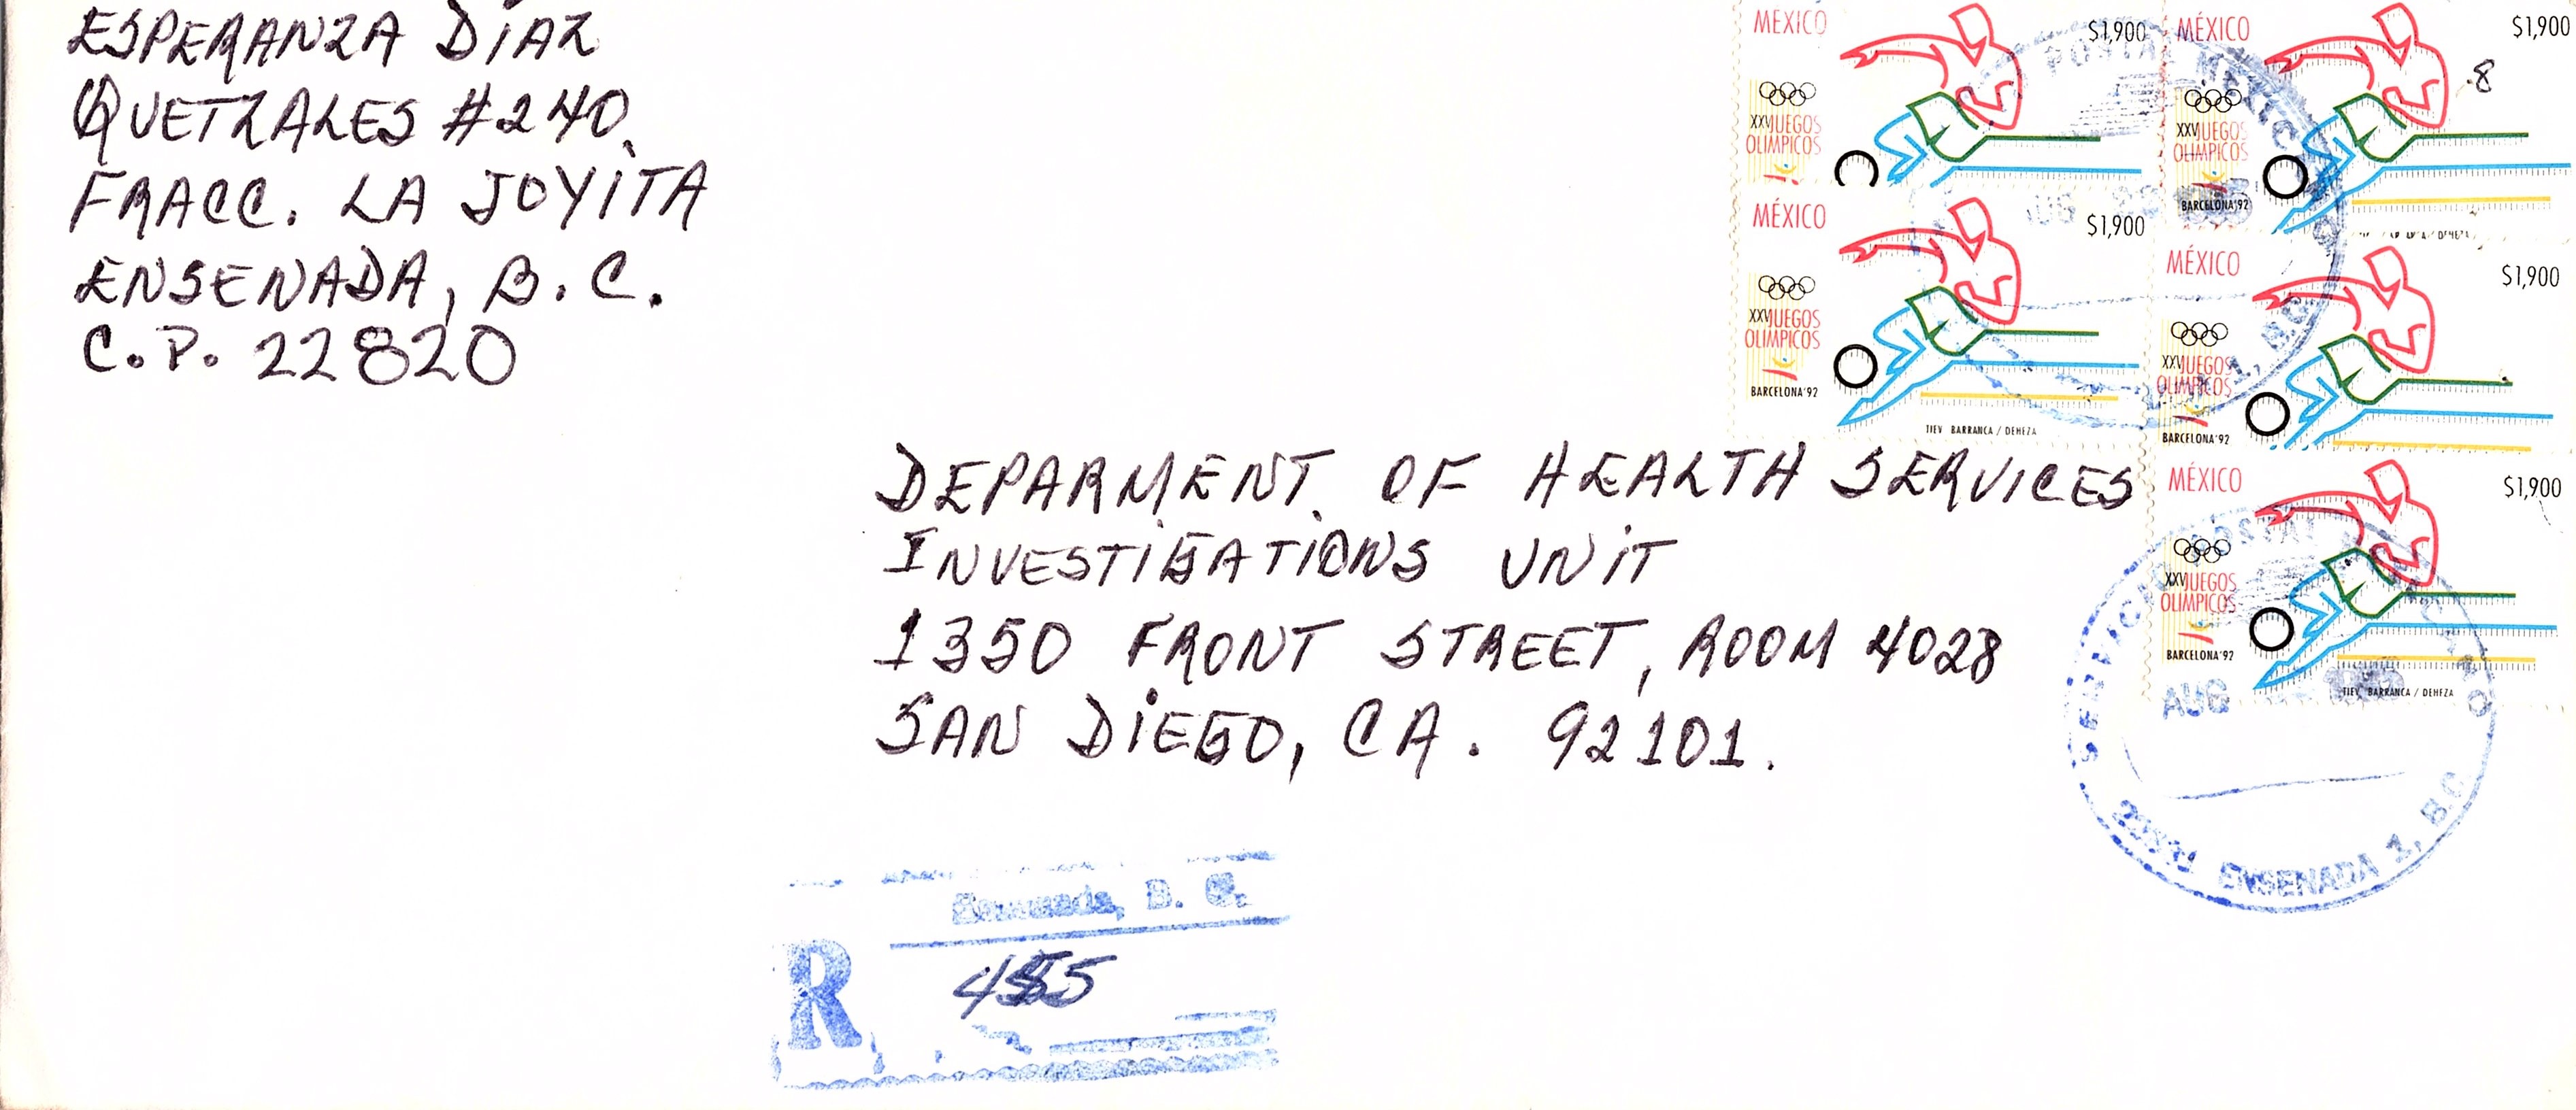 ESPERANZA DIAZ
QUETZALES #240.
FRACC. LA JOYITA
ENSENADA, B.C.
C.P. 22820
MÉXICO $1,900
XXV JUEGOS
OLIMPICOS
MÉXICO $1,900
8
XXV JUEGOS
OLIMPICOS
BARCELONA'92
MÉXICO $1,900
XXV JUEGOS
OLIMPICOS
BARCELONA'92
TIEV BARRANCA / DEHEZA
MÉXICO $1,900
XXV JUEGOS
OLIMPICOS
BARCELONA'92
MÉXICO $1,900
XXV JUEGOS
OLIMPICOS
BARCELONA'92
TIEV BARRANCA / DEHEZA
POSTAL MEXICANO
AUG
DEPARMENT. OF HEALTH SERVICES
INVESTIGATIONS UNIT
1350 FRONT STREET, ROOM 4028
SAN DIEGO, CA. 92101.
SERVICIO POSTAL MEXICANO
AUG
ENSENADA 1, B.C.
Ensenada, B. C.
R